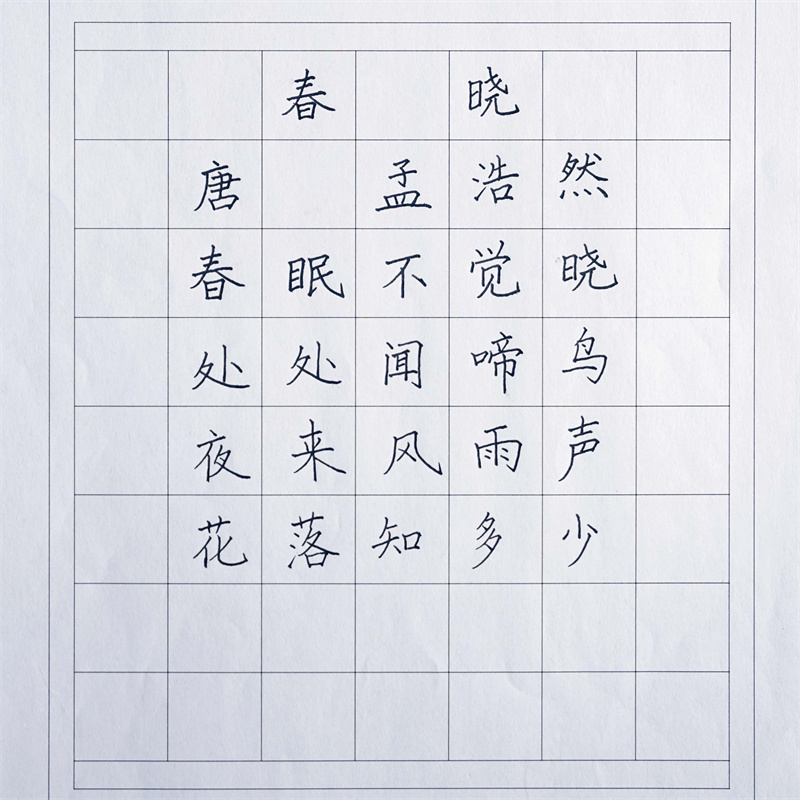 春晓
唐 孟浩然
春眠不觉晓
处处闻啼鸟
夜来风雨声
花落知多少